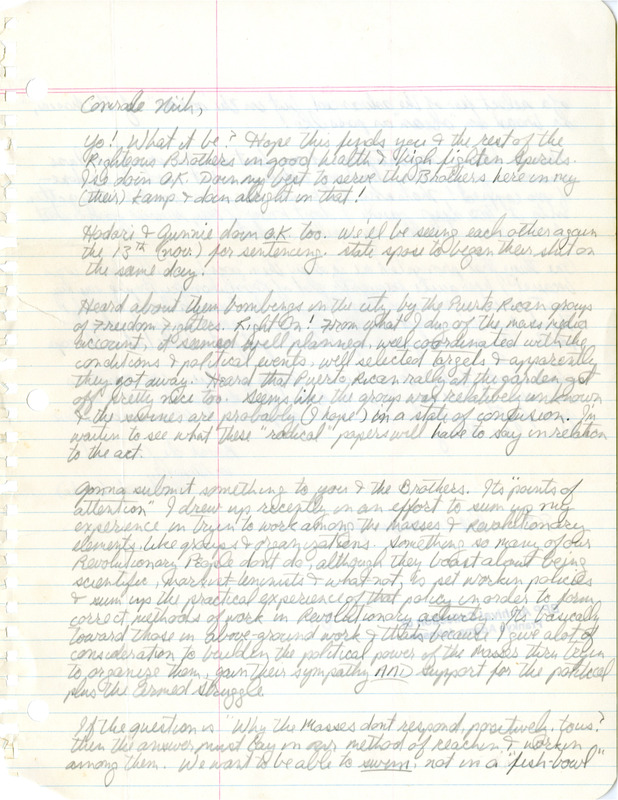 Comrade
Yo! What it be? Hope this finds you & the rest of the
Righteous Brothers in good health & high fighten spirits.
I'se doin O.K. Doin my best to serve the Brothers here in my
(their) Kamp & doin alright in that!
& Gunnie doin O.K. too. We'll be seeing each other again
the 13th (nov.) for sentencing. State spose to began their shit on
the same day!
Heard about them bombings in the city by the Puerto Rican groups
of Freedom Fighters. Right On! From what I dug of the mass media
account, it seemed well planned, well coordinated with the
conditions & political events, well selected targets & apparently
they got away. Heard that Puerto Rican rally at the garden got
off pretty nice too. Seems like the group was relatively unknown
& the swines are probably (I hope) in a state of confusion. I'm
waitin to see what these "radical" papers will have to say in relation
to the act.
Gonna submit something to you & the Brothers. Its "points of
attention" I drew up recently in an effort to sum up my
experience in tryin to work among the masses & Revolutionary
elements, like groups & organizations. Something so many of our
Revolutionary People dont do, although they boast about being
scientific, marxist leninists & what not, is set workin policies
& sum up the practical experience of that policy in order to form
correct methods of work in Revolutionary activity. Its basically
toward those in above-ground work & because I give alot of
consideration to buildin the political power of the Masses thru tryin
to organize them, gain their sympathy AND support for the political
plus the armed struggle
If the question is "Why the Masses dont respond, positively, to us?"
then the answer must lay in our method of reachin & workin
among them. We want to be able to swim, not in a "fish-bowl"